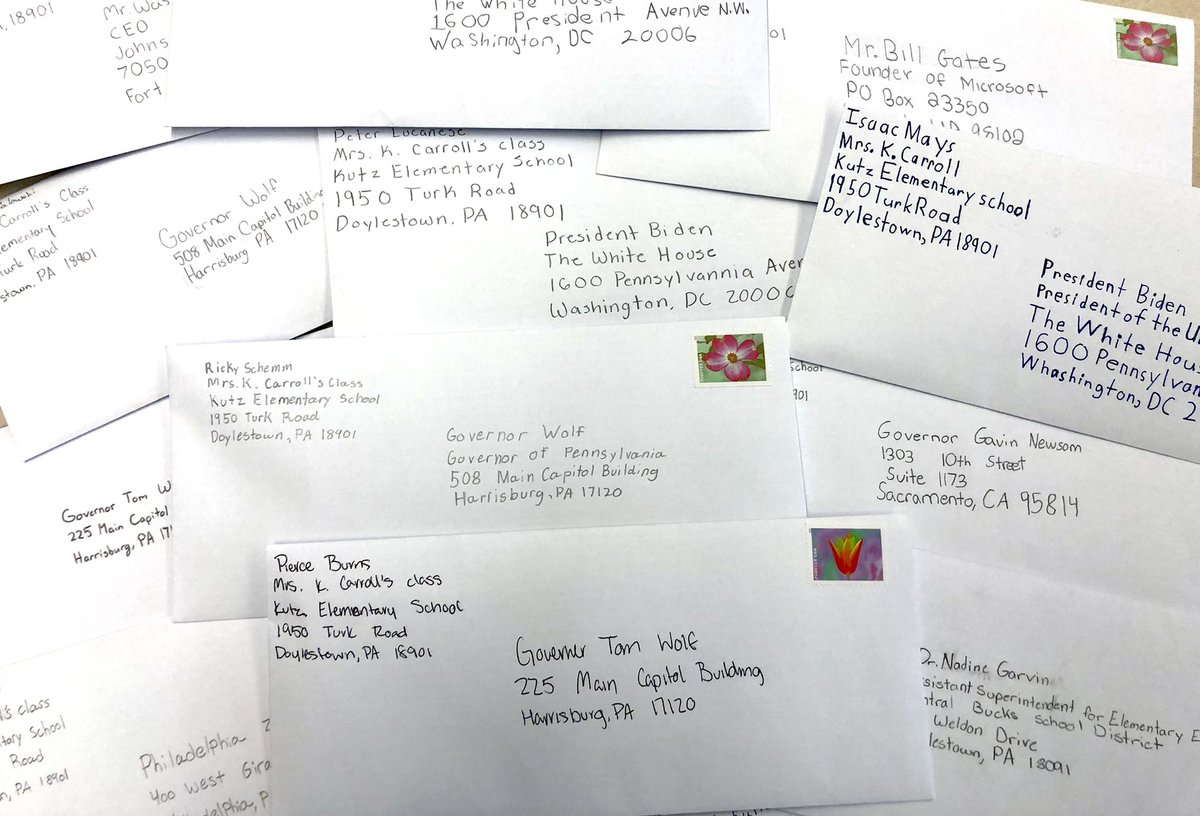 , 18901
Mr. Was
CEO
Johns
7050
Fort
The White House
1600 President Avenue N.W.
Washington, DC 20006
01
Mr. Bill Gates
Founder of Microsoft
PO Box 23350
98102
Peter Lucanese
Mrs. K. Carroll's class
Kutz Elementary School
1950 Turk Road
Doylestown. PA 18901
President Biden
The White House
1600 Pennsylvannia Aven
Washington, DC 20006
Isaac Mays
Mrs. K. Carroll
Kutz Elementary school
1950 Turk Road
Doylestown, PA 18901
President Biden
President of the Un
The White Hous
1600 Pennsylvan
Whashington, DC 2
alowski
Carroll's Class
lementary School
Turk Road
stown, PA 18901
Governor Wolf
508 Main Capitol Building
Harrisburg PA 17120
Ricky Schemm
Mrs. K. Carroll's Class
Kutz Elementary School
1950 Turk Road
Doylestown, PA 18901
Governor Wolf
Governor of Pennsylvania
508 Main Capitol Building
Harrisburg, PA 17120
School
901
Governor Gavin Newsom
1303 10th Street
Suite 1173
Sacramento, CA 95814
Governor Tom W
225 Main Capitol
Harrisburg, PA 17
Pierce Burns
Mrs. K. Carroll's class
Kutz Elementary School
1950 Turk Road
Doylestown, PA 18901
Governer Tom Wolf
225 Main Capitol Building
Harrisburg, PA 17120
Dr. Nadine Garvin
sistant Superintendent for Elementary E
ntral Bucks School District
Weldon Drive
lestown, PA 18091
l's class
tary School
Road
n, PA 18901
Philadelphia Z
400 West Gira
adelphia, P